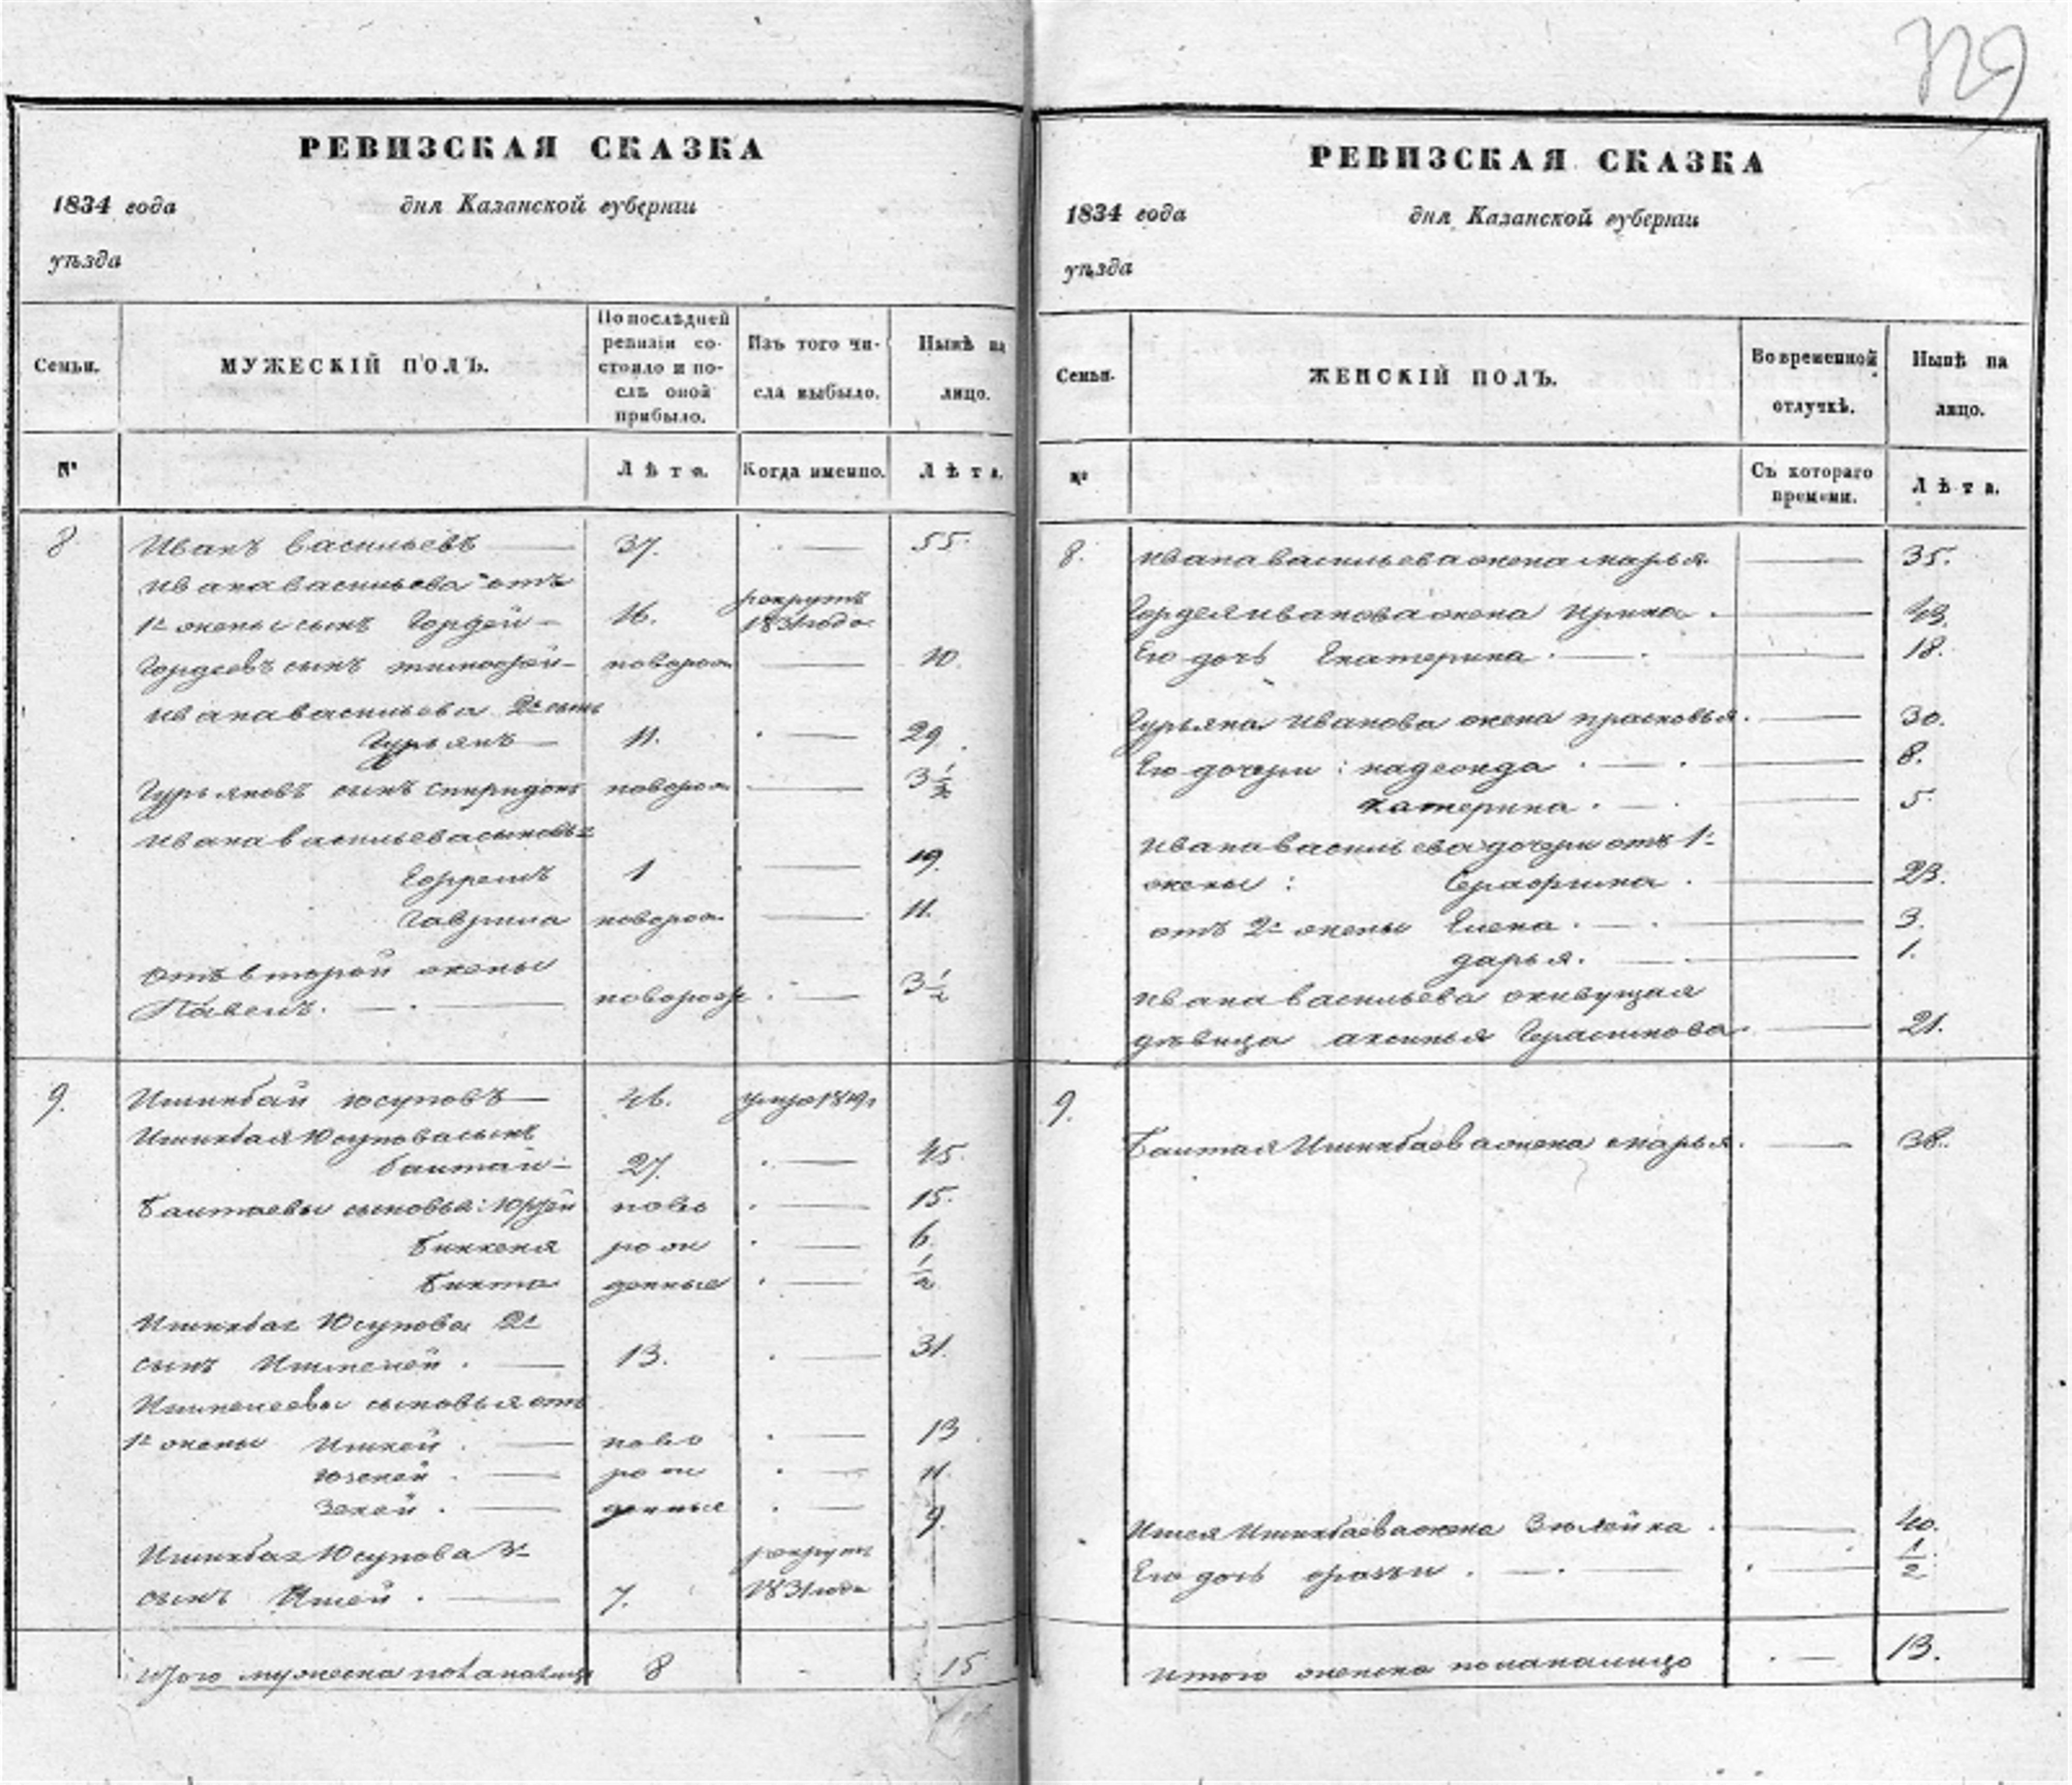 329
РЕВИЗСКАЯ СКАЗКА
1834 года дня Казанской губерніи
уѣзда
Семьи. МУЖЕСКІЙ ПОЛЪ. По послѣдней ревизіи состояло и послѣ оной прибыло. Изъ того числа выбыло. Нынѣ на лицо.
№ Лѣта. Когда именно. Лѣта.
8 Иванъ Васильевъ 37. 55.
Ивана Васильева отъ
1й жены сынъ Гордей 16. рекрутъ 1831 года
Гордеевъ сынъ тимофей новорож 10.
Ивана Васильева 2й сынъ
Гурьянъ 11. 29.
Гурьяновъ сынъ Спиридонъ новорож 3 1/2
Ивана Васильева сыновья
Ефремъ 1 19.
Гаврила новорож 11.
Отъ второй жены
Павелъ. новорож 3 1/2
9. Ишинбай Юсуповъ 46. умре 1819
Ишинбая Юсупова сынъ
баитай 27. 45.
Баитаевы сыновья: ново 15.
Биккеня рож 6.
Бикта денные 1/2
Ишинбая Юсупова 2й
сынъ Ишменей. 13. 31.
Ишменеевы сыновья отъ
1й жены Ишкей. ново 13.
рож 11.
Зекей. денные 9.
Ишинбая Юсупова 3й рекрутъ
сынъ Ишей. 7. 1831 года
Итого мужеска пола налицо 8 15
РЕВИЗСКАЯ СКАЗКА
1834 года дня Казанской губерніи
уѣзда
Семьи. ЖЕНСКІЙ ПОЛЪ. Во временной отлучкѣ. Нынѣ на лицо.
№ Съ котораго времени. Лѣта.
8. Ивана Васильева жена марья. 35.
Гордея иванова жена Ирина. 43.
Его дочь Екатерина. 18.
Гурьяна Иванова жена прасковья. 30.
Его дочери: надежда. 8.
катерина. 5.
Ивана Васильева дочери отъ 1й
жены: Серафима. 23.
отъ 2й жены Елена. 3.
дарья. 1.
Ивана Васильева живущая
дѣвица аксинья Герасимова. 21.
9.
Баитая Ишинбаева жена марья. 38.
Ишея Ишинбаева жена Зюлейка. 40.
Его дочь 1/2
Итого женска пола налицо 13.